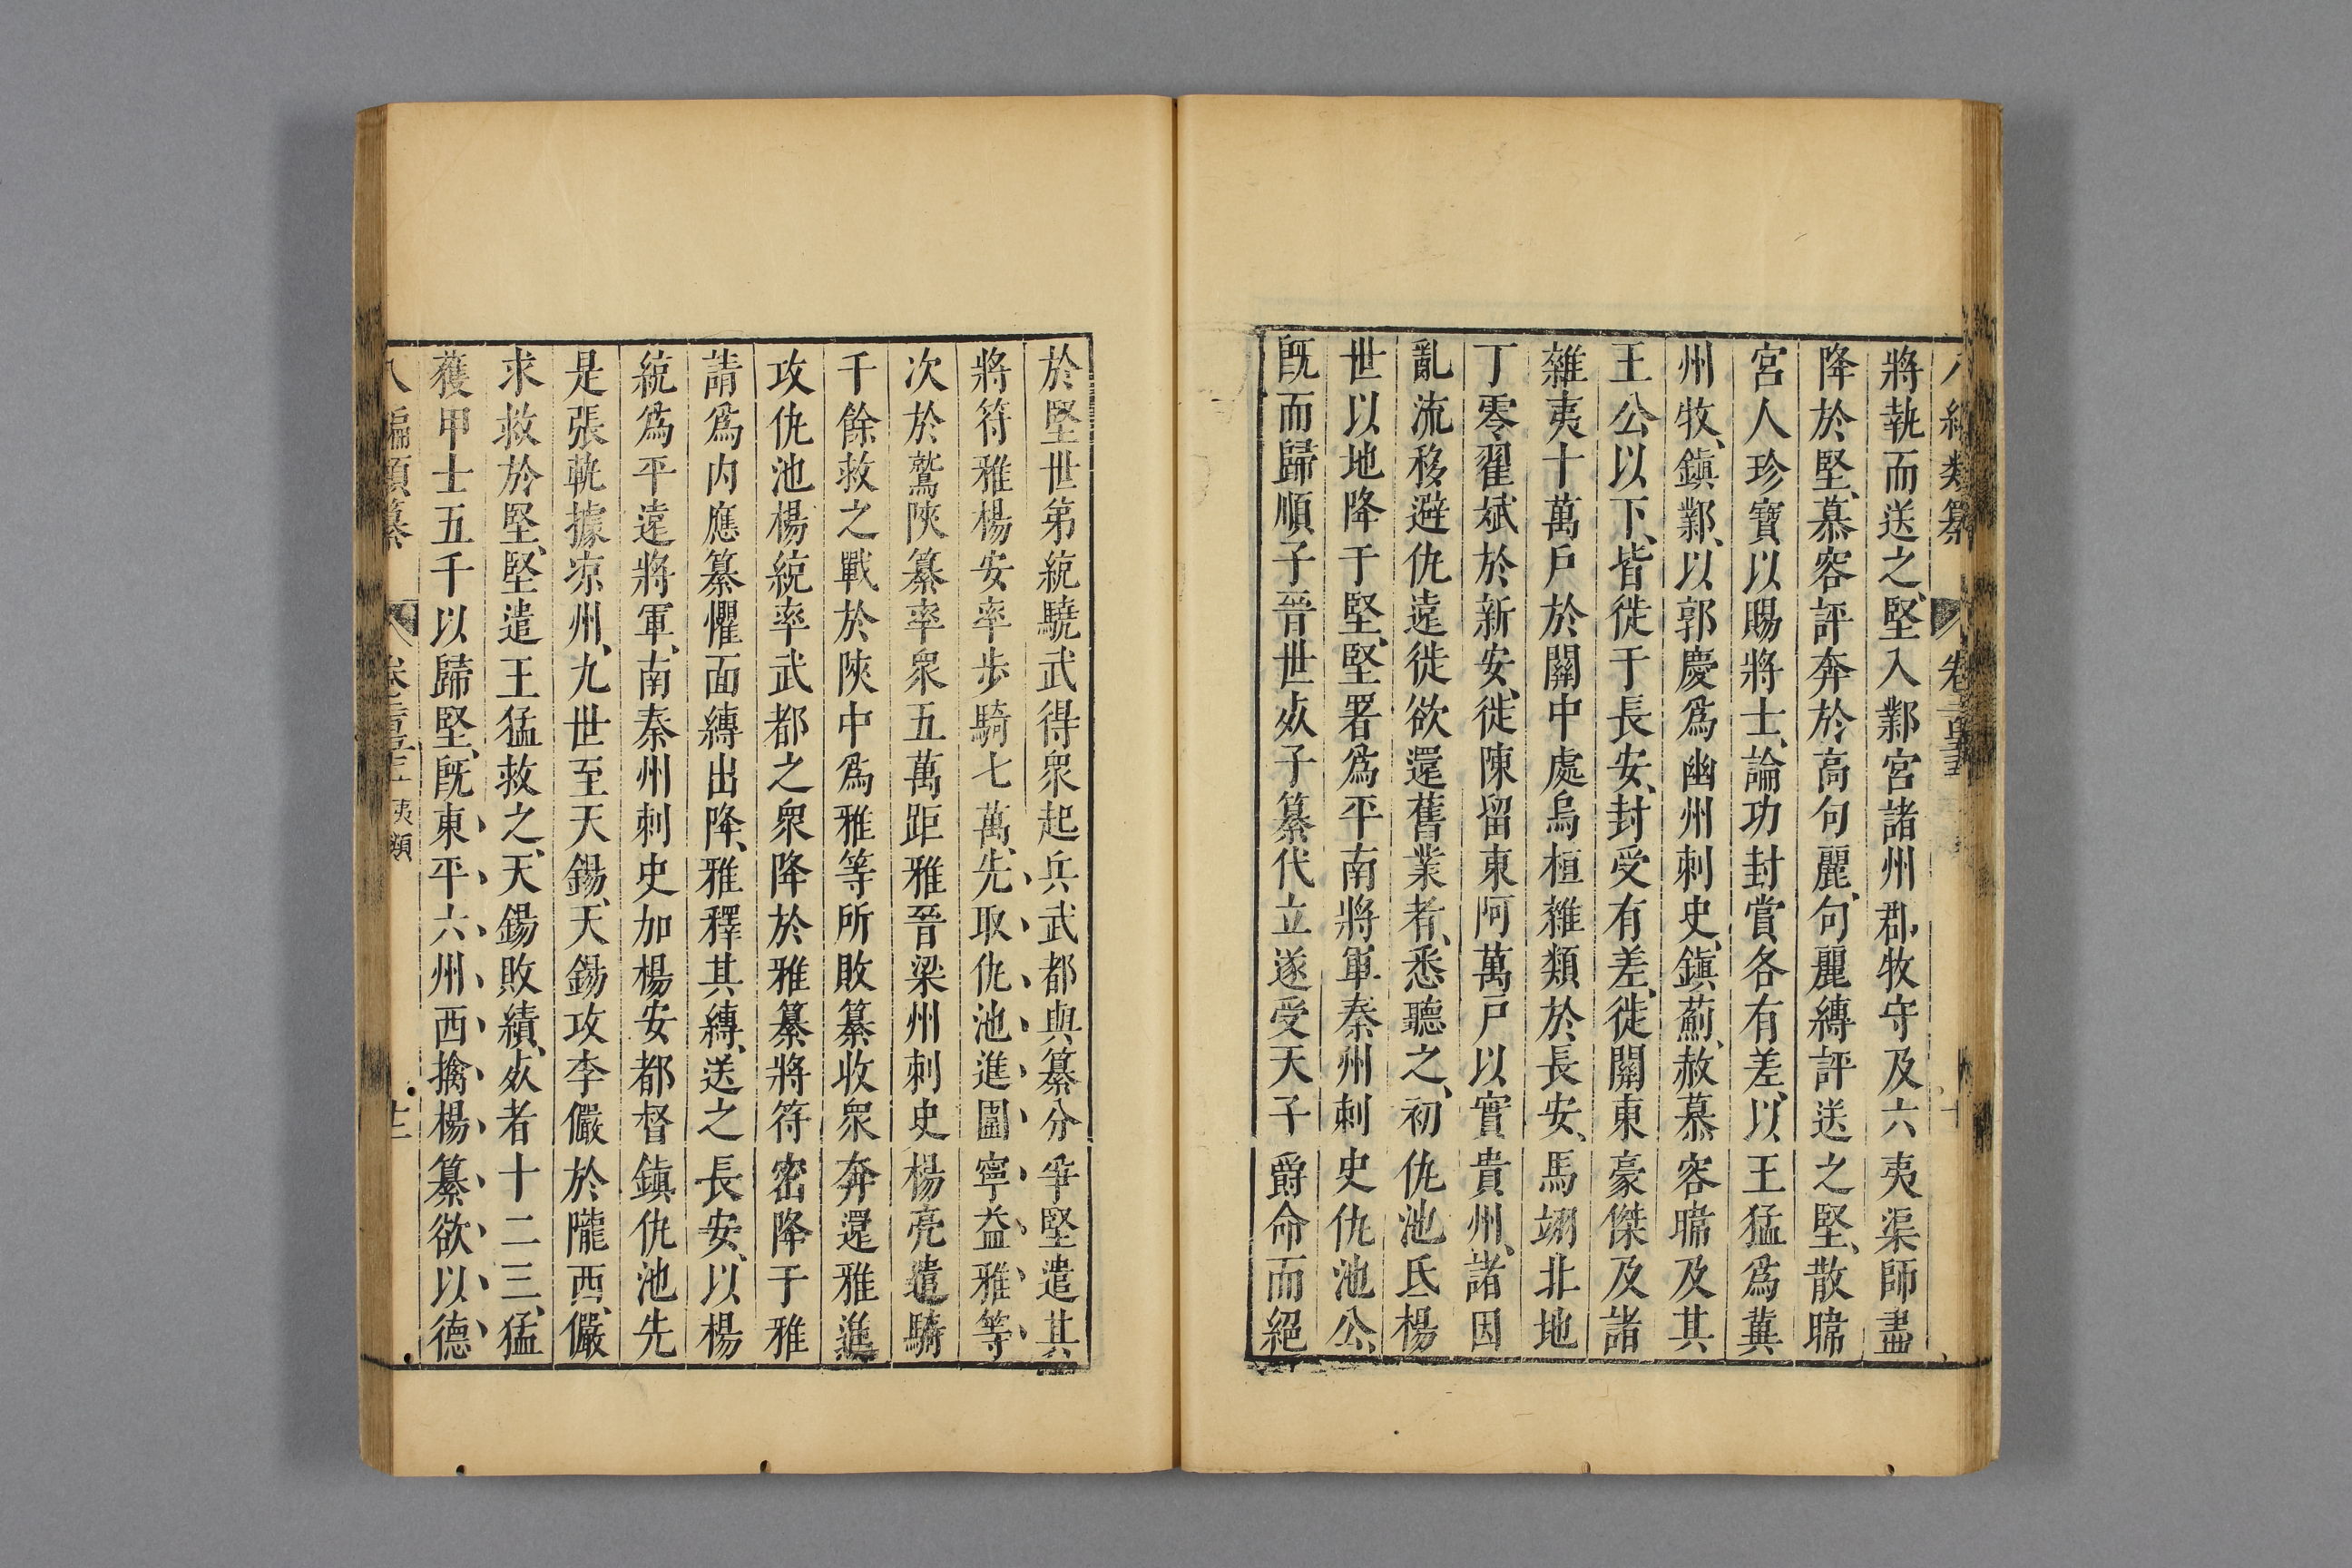 將執而送之、堅入鄴宮諸州郡牧守及六夷渠師盡
降於堅、慕容評奔於高句麗、句麗縛評送之堅、散暐
宮人珍寶以賜將士、論功封賞各有差、以王猛爲冀
州牧、鎭鄴、以郭慶爲幽州刺史、鎭薊、赦慕容暐及其
王公以下、皆徙于長安、封受有差、徙關東豪傑及諸
雜夷十萬戶於關中處烏桓雜類於長安、馮翊北地
丁零翟斌於新安、徙陳留東阿萬戶以實貴州、諸因
亂流移避仇遠徙欲還舊業者、悉聽之、初仇池氐楊
世以地降于堅、堅署爲平南將軍秦州刺史仇池公、
旣而歸順于晉世死子纂代立遂受天子爵命而絕
於堅世弟統驍武得衆起兵武都與纂分爭堅遣其
將符雅楊安率步騎七萬、先取仇池進圖寧益雅等
次於鷲陝纂率衆五萬距雅晉梁州刺史楊亮遣騎
千餘救之戰於陝中爲雅等所敗纂收衆奔還雅進
攻仇池楊統率武都之衆降於雅纂將符密降于雅
請爲內應纂懼面縛出降、雅釋其縛、送之長安、以楊
統爲平遠將軍、南秦州刺史加楊安都督鎭仇池先
是張軌據凉州、九世至天錫、天錫攻李儼於隴西、儼
求救於堅、堅遣王猛救之、天錫敗績、死者十二三、猛
獲甲士五千以歸堅、旣東平六州西擒楊纂欲以德
八編類纂 卷 夷類